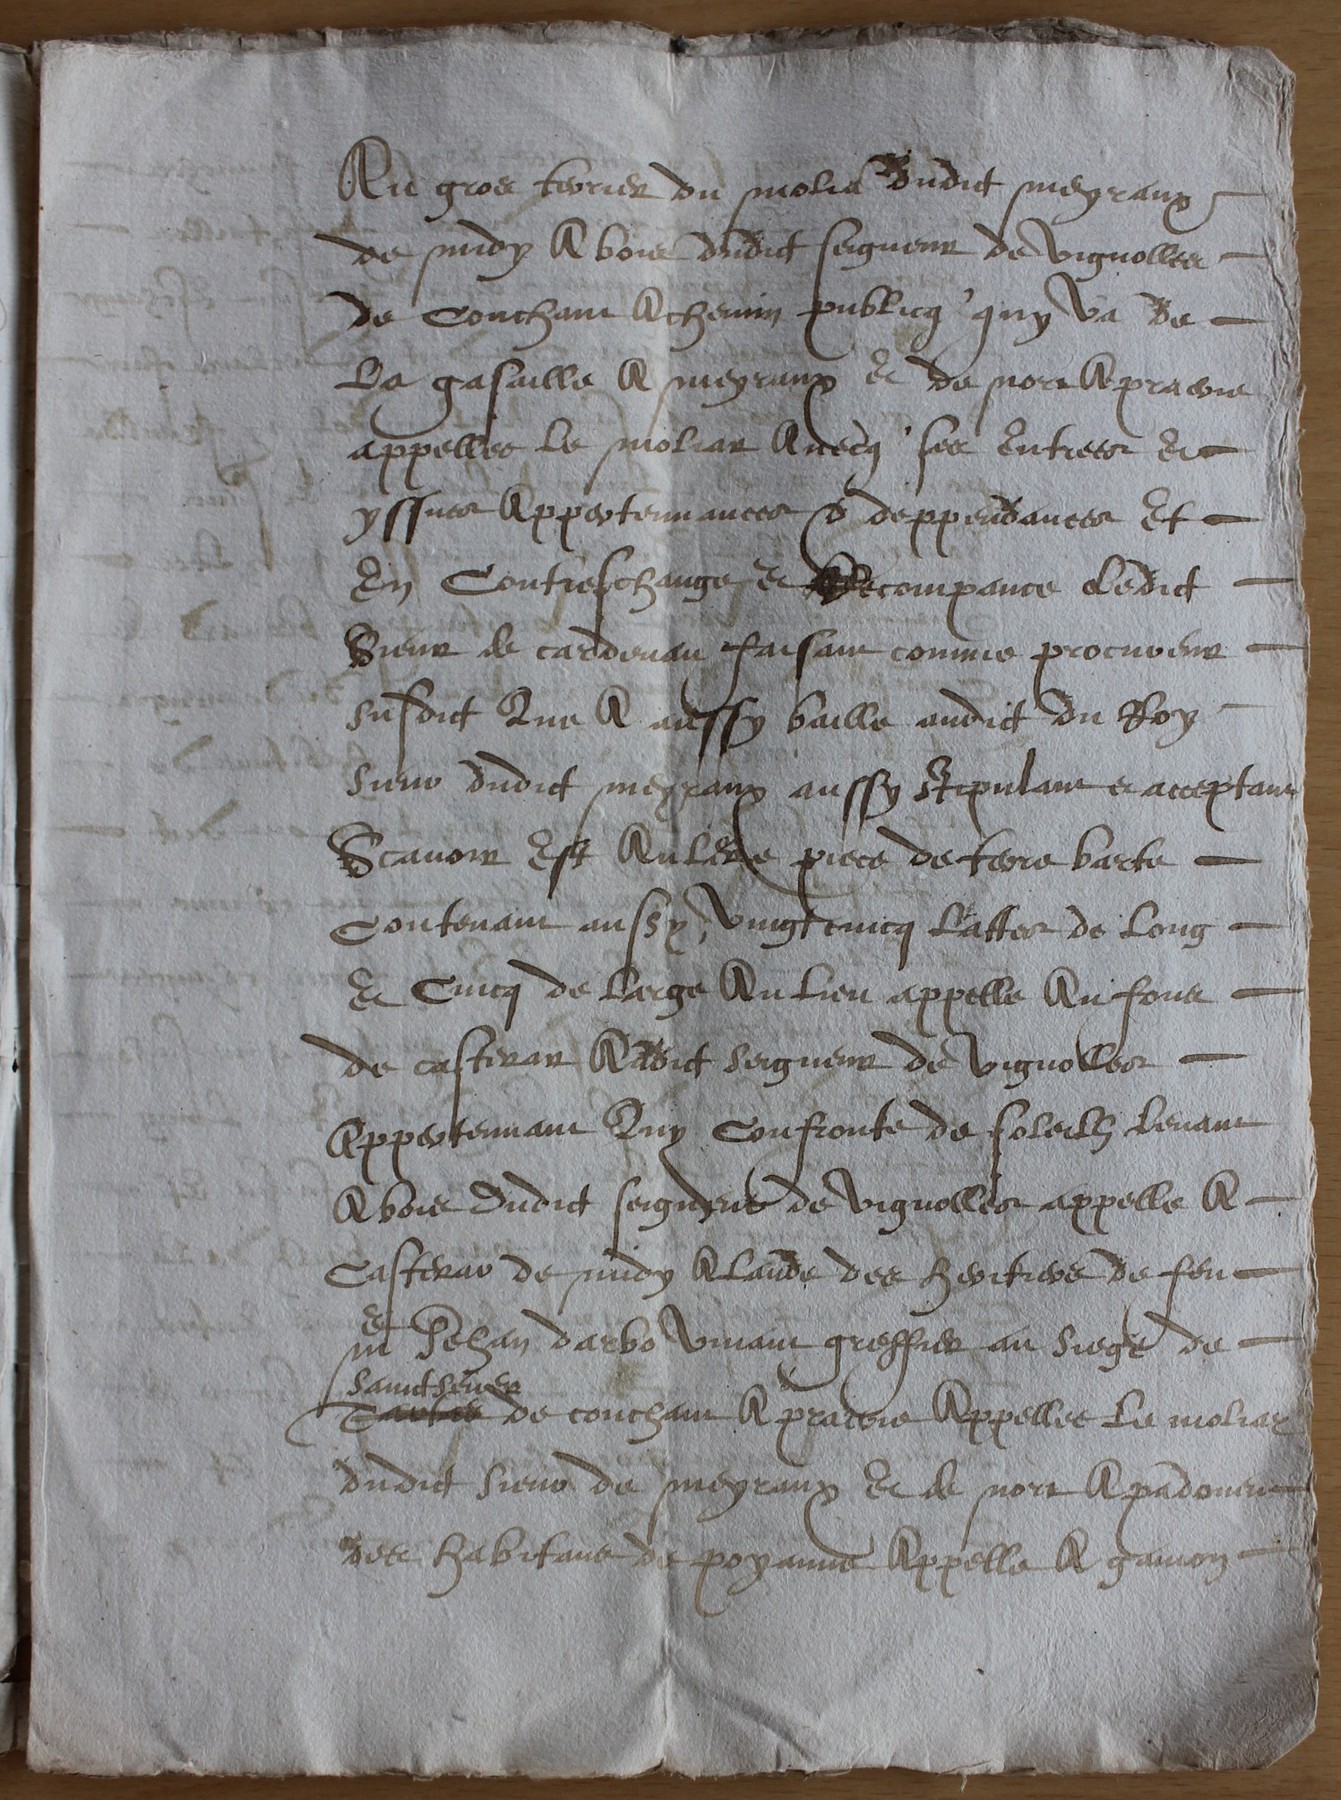 Au gros terrier du molia dudict meyraux
de midy A bois dudict seigneur de vignolles
de Couchant A chemin publicq' quy va de
La gasaille A meyraux & de nort A prairie
appellee le moliar Avecq' ses Entrees &
yssues Appertennances & deppendances Et
En Contreschange & Recompance Ledict
Sieur de cardenau faisant comme procureur
susdict Que A aussy baille audict du Roy
sieur dudict meyraux aussy stipulant & acceptant
Scavoir Est Aultre piece de terre barte
Contenant aussy vingt cincq Lattes de Long
& Cincq de Large Au Lieu appelle Au fons
de casterar Audict seigneur de vignolles
Appertennant Quy Confronte de soleilh Levant
A bois dudict seigneur de vignolles appelle A
Casterar de midy A Lande des heritiers de feu
me Jehan darbo vivant greffier au siege de
sainct sever
de couchant A prairie Appellee Le moliar
dudict sieur de meyraux & de nort A padouen
des habitans de poyanne Appelle A